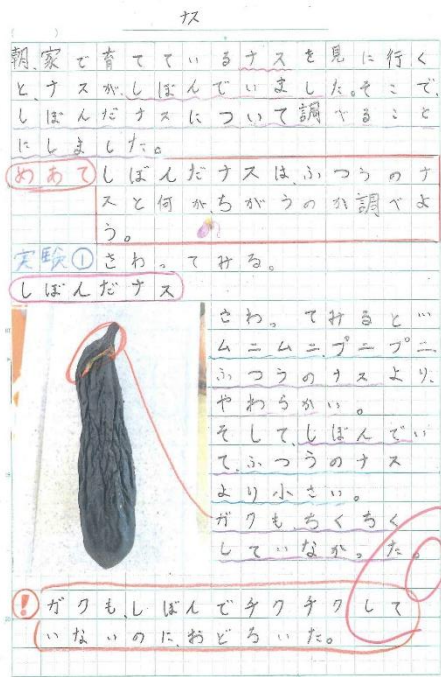 ナス
朝、家で育てているナスを見に行く
と、ナスが、しぼんでいました。そこで、
しぼんだナスについて調べること
にしました。
めあて しぼんだナスは、ふつうのナ
スと何が、ちがうのか調べよ
う。
実験① さわってみる。
しぼんだナス
さわってみると…
ムニムニ、プニプニ、
ふつうのナスより、
やわらかい。
そして、しぼんでい
て、ふつうのナス
より小さい。
ガクも、ちくちく
していなかった。
! ガクも、しぼんでチクチクして
いないのに、おどろいた。